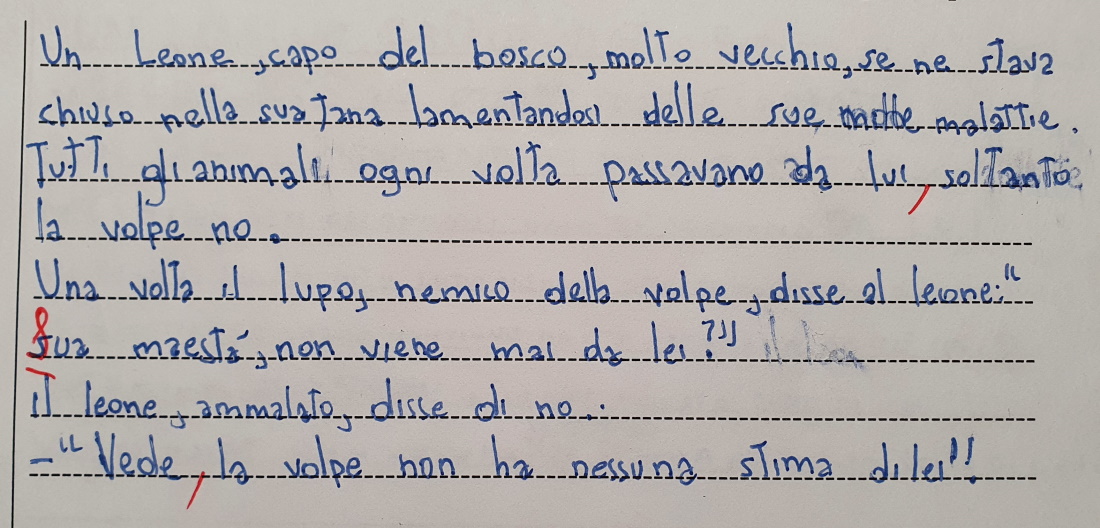 Un Leone, capo del bosco, molto vecchio, se ne stava
chiuso nella sua tana lamentandosi delle sue molte malattie.
Tutti gli animali ogni volta passavano da lui, soltanto
la volpe no.
Una volta il lupo, nemico della volpe, disse al leone: "
Sua maestà, non viene mai da lei?"
il leone, ammalato, disse di no.:
-" Vede, la volpe non ha nessuna stima di lei"!